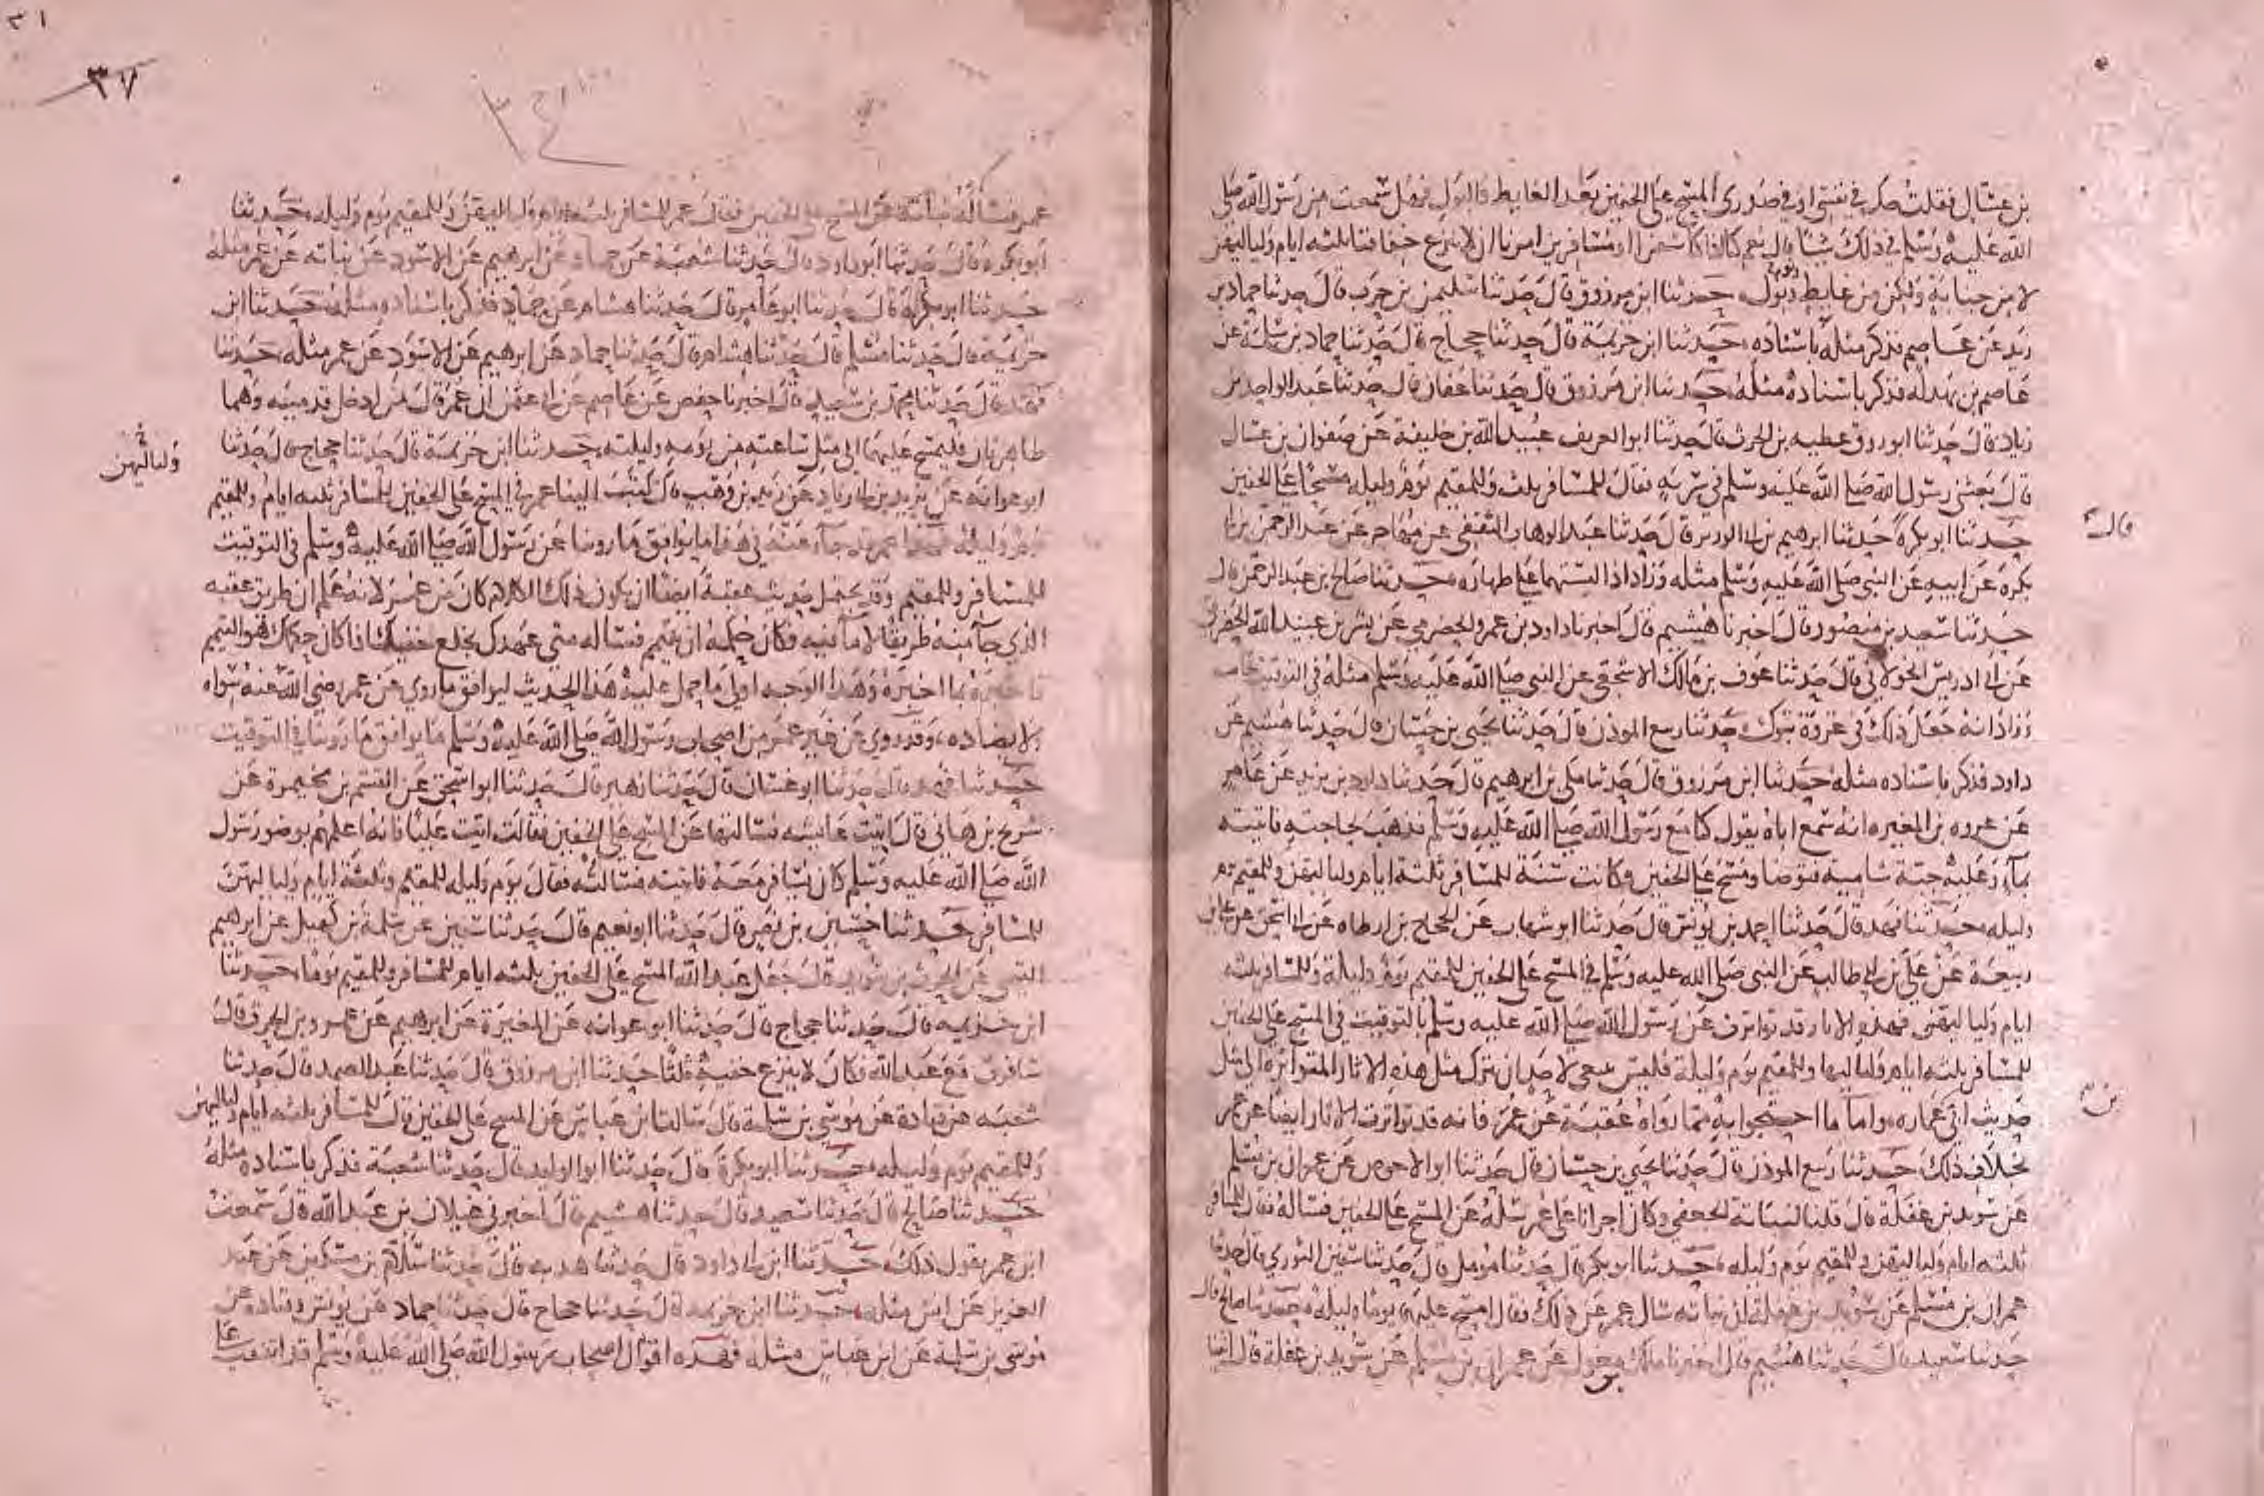 بن عسال فقلت حك في نفسي او في صدري المسح على الخفين بعد الغايط والبول فهل سمعت من رسول الله صلى
الله عليه وسلم في ذلك شيا قال نعم كنا اذا كنا سفرا او مسافرين امرنا ان لا ننزع خفافنا ثلثه ايام ولياليهن
الا من جنابة ولكن من غايط وبول ونوم حدثنا ابن مرزوق قال حدثنا سليمن بن حرب قال حدثنا حماد بن
زيد عن عاصم فذكر مثله باسناده حدثنا ابن خزيمة قال حدثنا حجاج قال حدثنا حماد بن سلمة عن
عاصم بن بهدلة فذكر باسناده مثله حدثنا ابن مرزوق قال حدثنا عفان قال حدثنا عبد الواحد بن
زياد قال حدثنا ابو روق عطيه بن الحرث قال حدثنا ابو الغريف عبيد الله بن خليفة عن صفوان بن عسال
قال بعثني رسول الله صلى الله عليه وسلم في سرية فقال للمسافر ثلث وللمقيم يوم وليله مسحا على الخفين
حدثنا ابو بكرة حدثنا ابرهيم بن ابي الوزير قال حدثنا عبد الوهاب الثقفي عن مهاجر عن عبد الرحمن بن ابي
قال
بكرة عن ابيه عن النبي صلى الله عليه وسلم مثله وزاد اذا لبستهما على طهارة حدثنا صالح بن عبد الرحمن قال
حدثنا سعيد بن منصور قال اخبرنا هشيم قال اخبرنا داود بن عمرو الحضرمي عن بسر بن عبيد الله الحضرمي
عن ابي ادريس الخولاني قال حدثنا عوف بن مالك الاشجعي عن النبي صلى الله عليه وسلم مثله في التوقيت خاصة
وزاد انه جعل ذلك في غزوة تبوك حدثنا ربيع الموذن قال حدثنا يحيى بن حسان قال حدثنا هشيم عن
داود فذكر باسناده مثله حدثنا ابن مرزوق قال حدثنا مكي بن ابرهيم قال حدثنا داود بن يزيد عن عامر
عن عروه بن المغيره انه سمع اباه يقول كنا مع رسول الله صلى الله عليه وسلم فذهب لحاجته فاتيته
بماء وعليه جبة شامية فتوضا ومسح على الخفين وكانت سنة للمسافر ثلثة ايام ولياليهن وللمقيم يوم
وليله حدثنا فهد قال حدثنا احمد بن يونس قال حدثنا ابو شهاب عن الحجاج بن ارطاه عن ابي اسحق عن علي بن
ربيعة عن علي بن ابي طالب عن النبي صلى الله عليه وسلم في المسح على الخفين للمقيم يوم وليلة وللمسافر ثلثه
ايام ولياليهن فهذه الاثار قد تواترت عن رسول الله صلى الله عليه وسلم بالتوقيت في المسح على الخفين
للمسافر ثلثه ايام ولياليها وللمقيم يوم وليلة فليس ينبغي لاحد ان يترك مثل هذه الاثار المتواترة الى مثل
حديث ابي عماره واما ما احتجوا به مما رواه عقبة عن عمر فانه قد تواترت الاثار ايضا عن عمر
بن
بخلاف ذلك حدثنا ربيع الموذن قال حدثنا يحيى بن حسان قال حدثنا ابو الاحوص عن عمران بن مسلم
عن سويد بن غفلة قال قلنا لنباتة الجعفي وكان اجرانا على عمر سله عن المسح على الخفين فساله فقال للمسافر
ثلثه ايام ولياليهن وللمقيم يوم وليله حدثنا ابو بكرة قال حدثنا مومل قال حدثنا سفين الثوري قال حدثنا
عمران بن مسلم عن سويد بن غفلة ان نباته سال عمر عن ذلك فقال امسح عليهما يوما وليلة حدثنا صالح قال
حدثنا سعيد قال حدثنا هشيم قال اخبرنا مالك بن مغول عن عمران بن مسلم عن سويد بن غفلة قال اتينا
٣٧
عمر فساله نباتة عن المسح على الخفين فقال عمر للمسافر ثلثه ايام ولياليهن وللمقيم يوم وليله حدثنا
ابو بكره قال حدثنا ابو داود قال حدثنا شعبة عن حماد عن ابرهيم عن الاسود عن نباته عن عمر مثله
حدثنا ابو بكرة قال حدثنا ابو عامر قال حدثنا هشام عن حماد فذكر باسناده مثله حدثنا ابن
خزيمة قال حدثنا مسلم قال حدثنا هشام قال حدثنا حماد عن ابرهيم عن الاسود عن عمر مثله حدثنا
فهد قال حدثنا محمد بن سعيد قال اخبرنا حفص عن عاصم عن ابي عثمن ان عمر قال من ادخل قدميه وهما
طاهرتان فليمسح عليهما الى مثل ساعته من يومه وليلته حدثنا ابن خزيمة قال حدثنا حجاج قال حدثنا
ابو عوانه عن يزيد بن ابي زياد عن زيد بن وهب قال كتب الينا عمر في المسح على الخفين للمسافر ثلثه ايام وللمقيم
ولياليهن
يوم وليلة فهذا عمر قد جاء عنه في هذا ما يوافق ما روينا عن رسول الله صلى الله عليه وسلم في التوقيت
للمسافر وللمقيم وقد يحتمل حديث عقبة ايضا ان يكون ذلك الكلام كان من عمر لانه علم ان طريق عقبه
الذي جا منه طريق لا ما فيه فكان حكمه ان يتيمم فساله متى عهدك بخلع خفيك اذا كان حكمك هو التيمم
فاخبره بما اخبره وهذا الوجه اولى ما حمل عليه هذا الحديث ليوافق ما روي عن عمر رضي الله عنه سواه
لا يضاده وقد روي عن غير عمر من اصحاب رسول الله صلى الله عليه وسلم ما يوافق ما روينا في التوقيت
حدثنا فهد قال حدثنا ابو غسان قال حدثنا زهير قال حدثنا ابو اسحق عن القسم بن مخيمرة عن
شريح بن هاني قال اتيت عايشه فسالتها عن المسح على الخفين فقالت ايت عليا فانه اعلمهم بوضو رسول
الله صلى الله عليه وسلم كان يسافر معه فاتيته فسالته فقال يوم وليله للمقيم وثلثة ايام ولياليهن
للمسافر حدثنا حسين بن نصر قال حدثنا ابو نعيم قال حدثنا سفين عن سلمة بن كهيل عن ابرهيم
التيمي عن الحرث بن سويد قال جعل عبد الله المسح على الخفين ثلثه ايام للمسافر وللمقيم يوما حدثنا
ابن خزيمه قال حدثنا حجاج قال حدثنا ابو عوانه عن المغيرة عن ابرهيم عن عمرو بن الحرث قال
سافرت مع عبد الله فكان لا ينزع خفيه ثلثا حدثنا ابن مرزوق قال حدثنا عبد الصمد قال حدثنا
شعبه عن قتادة عن موسى بن سلمة قال سالت ابن عباس عن المسح على الخفين قال للمسافر ثلثه ايام ولياليهن
وللمقيم يوم وليله حدثنا ابو بكرة قال حدثنا ابو الوليد قال حدثنا شعبة فذكر باسناده مثله
حدثنا صالح قال حدثنا سعيد قال حدثنا هشيم قال اخبرني غيلان بن عبد الله قال سمعت
ابن عمر يقول ذلك حدثنا ابن ابي داود قال حدثنا هدبه قال حدثنا سلام بن مسكين عن عبد
العزيز عن انس مثله حدثنا ابن خزيمه قال حدثنا حجاج قال حدثنا حماد عن يونس وقتاده عن
موسى بن سلمة عن ابن عباس مثله فهذه اقوال اصحاب رسول الله صلى الله عليه وسلم قد اتفقت على